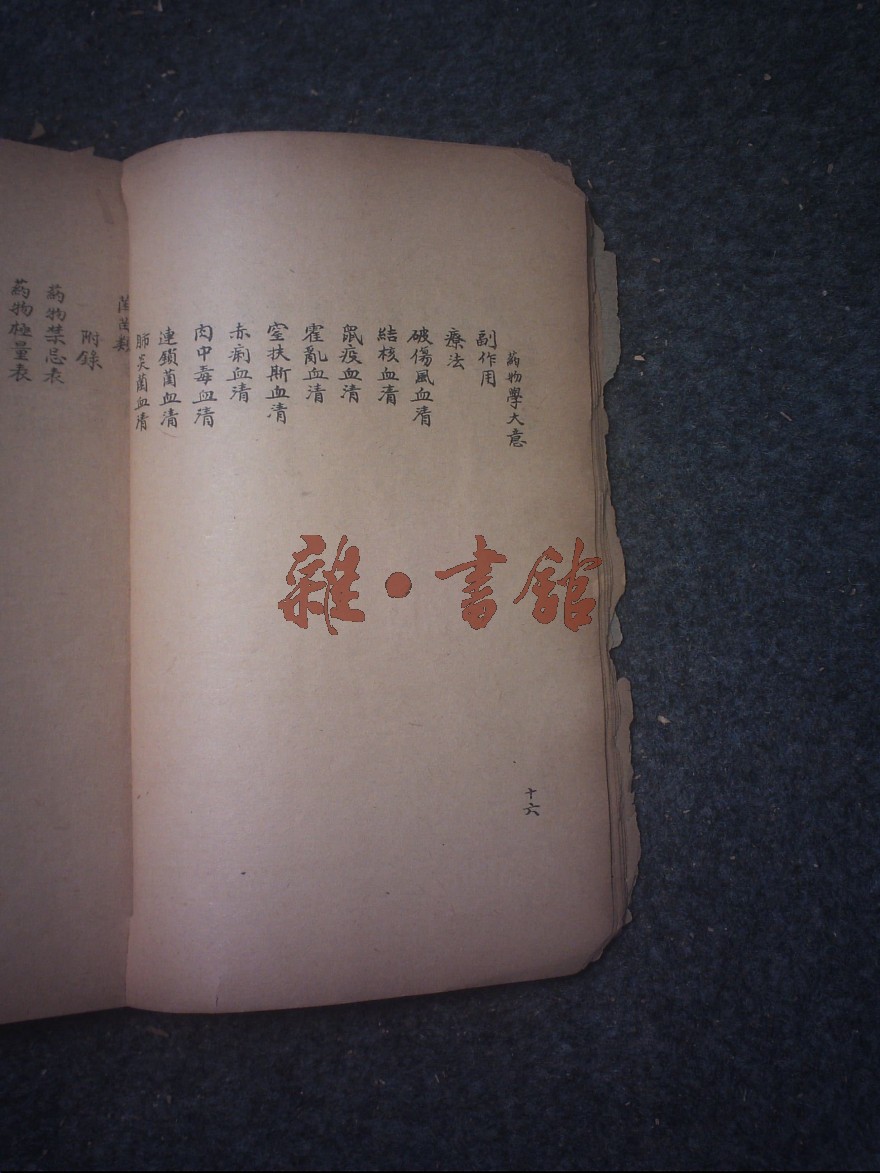 葯物學大意
副作用
療法
破傷風血清
結核血清
鼠疫血清
霍亂血清
窒扶斯血清
赤痢血清
肉中毒血清
連鎖菌血清
肺炎菌血清
十六
菌類
附錄
葯物禁忌表
葯物極量表
雜·書館